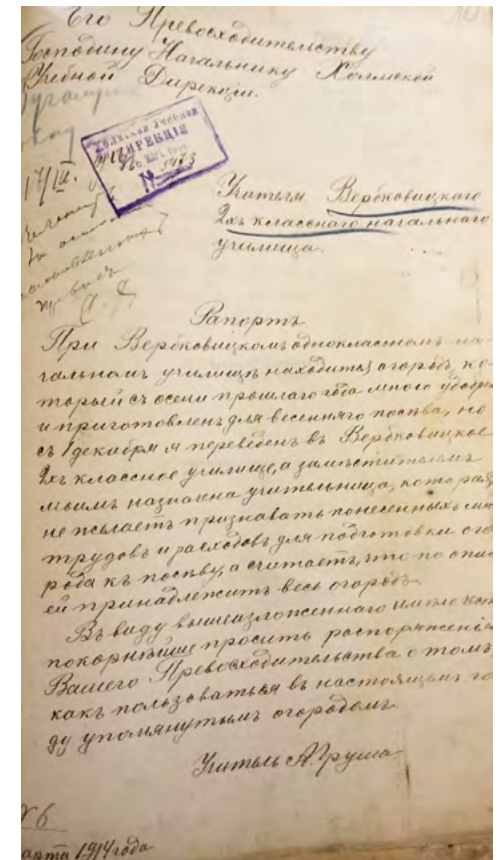 Его Превосходительству
Господину Начальнику Холмской
Учебной Дирекціи.
ХОЛМСКАЯ УЧЕБНАЯ
ДИРЕКЦІЯ
№ 5473
17/III.
Учителя Вербковицкаго
2хъ класснаго начальнаго
училища.
Рапортъ
При Вербковицкомъ одноклассномъ на-
чальномъ училищѣ находится огородъ, ко-
торый съ осени прошлаго года много удобренъ
и приготовленъ для весенняго посѣва, но
съ 1 декабря я переведенъ въ Вербковицкое
2хъ классное училище, а замѣстителемъ
моимъ назначена учительница, которая
не желаетъ признавать понесенныхъ мною
трудовъ и расходовъ для подготовки ого-
рода къ посѣву, а считаетъ, что по описи
ей принадлежитъ весь огородъ.
Въ виду вышеизложеннаго имѣю честь
покорнѣйше просить распоряженія
Вашего Превосходительства о томъ,
какъ пользоваться въ настоящемъ го-
ду упомянутымъ огородомъ.
Учитель А. Груша
№6
марта 1914 года